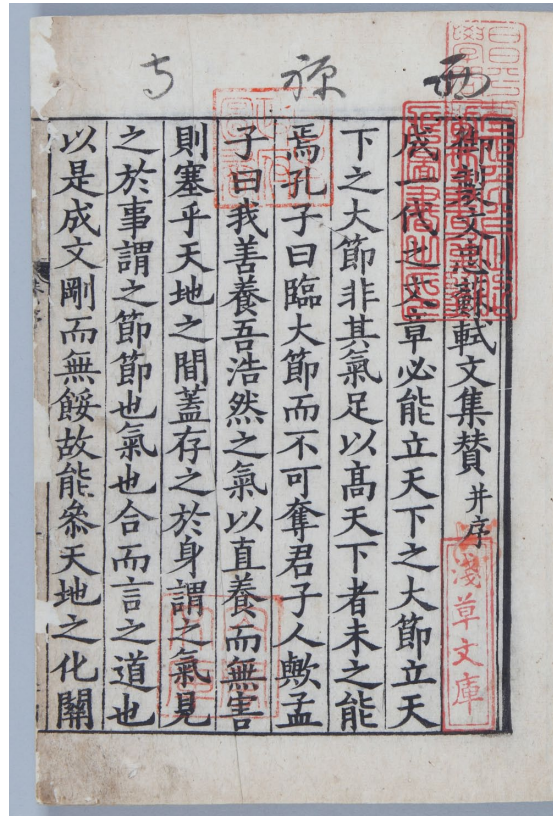 西禅寺
御製文忠蘇軾文集賛 并序
成一代之文章必能立天下之大節立天
下之大節非其氣足以髙天下者未之能
焉孔子曰臨大節而不可奪君子人歟孟
子曰我善養吾浩然之氣以直養而無害
則塞乎天地之間蓋存之於身謂之氣見
之於事謂之節節也氣也合而言之道也
以是成文剛而無餒故能叅天地之化關
淺草文庫